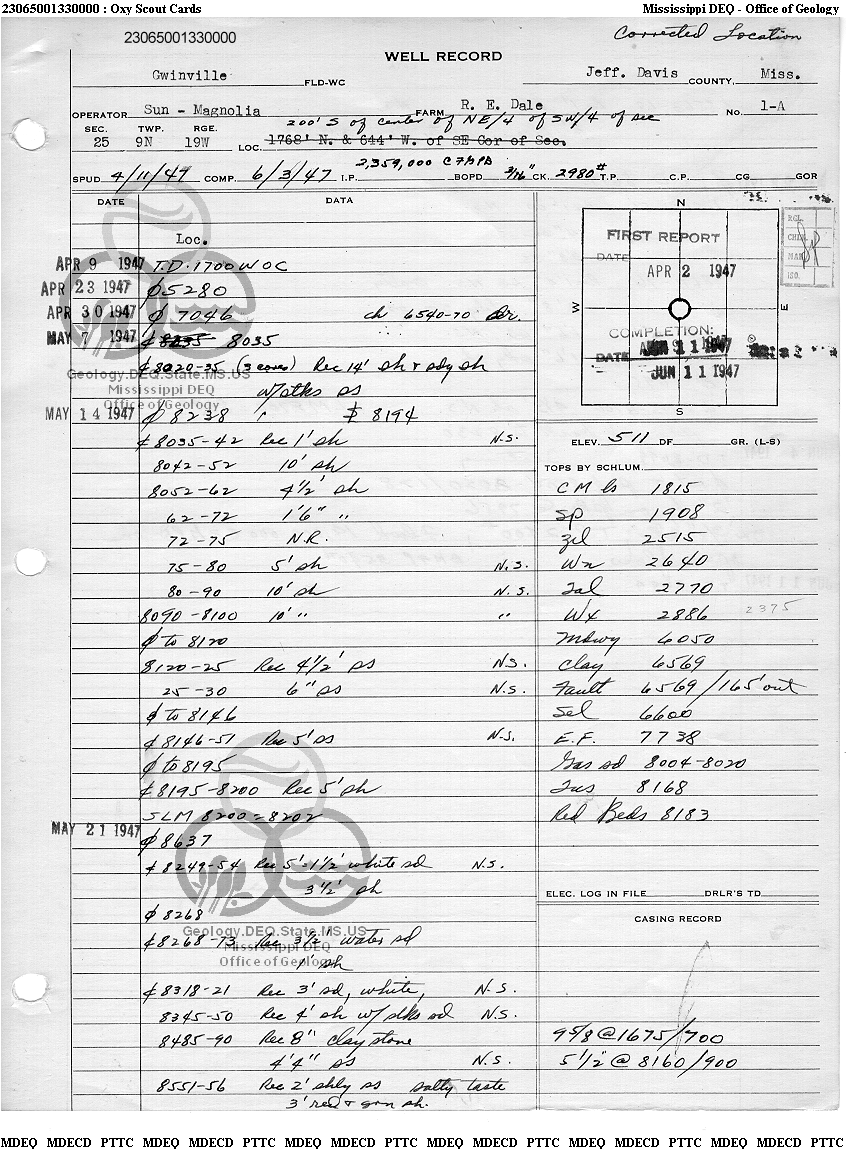 23065001330000 : Oxy Scout Cards Mississippi DEQ - Office of Geology
23065001330000
Corrected Location
WELL RECORD
Gwinville FLD-WC Jeff. Davis COUNTY, Miss.
OPERATOR Sun - Magnolia FARM R. E. Dale No. 1-A
200' S of center of NE/4 of SW/4 of sec
SEC. TWP. RGE.
25 9N 19W LOC. 1768' N. & 644' W. of SE Cor of Sec.
SPUD 4/11/47 COMP. 6/3/47 I.P. 2,359,000 CFGPD BOPD 3/16" CK. 2980# T.P. C.P. CG GOR
DATE DATA
Loc.
APR 9 1947 T.D. 1700 WOC
APR 23 1947 Ø 5280
APR 30 1947 Ø 7046 ch 6540-70
MAY 7 1947 ¢ 8235 8035
¢ 8020-35 (3 cores) Rec 14' sh & sdy sh
w/stks ss
MAY 14 1947 Ø 8238 8194
¢ 8035-42 Rec 1' sh N.S.
8042-52 10' sh
8052-62 4½' sh
62-72 1'6" "
72-75 N.R.
75-80 5' sh N.S.
80-90 10' sh N.S.
8090-8100 10' " "
Ø to 8120
8120-25 Rec 4½' ss N.S.
25-30 6" ss N.S.
Ø to 8146
¢ 8146-51 Rec 5' ss N.S.
Ø to 8195
¢ 8195-8200 Rec 5' sh
SLM 8200 = 8202
MAY 21 1947 Ø 8637
¢ 8249-54 Rec 5' = 1½' white sd N.S.
3½' sh
Ø 8268
¢ 8268-73 Rec 3½' water sd
1' sh
¢ 8318-21 Rec 3' sd, white, N.S.
8345-50 Rec 4' sh w/ stks sd N.S.
8485-90 Rec 8" clay stone
4'4" ss N.S.
8551-56 Rec 2' shly ss salty taste
3' red & grn sh.
N
W
E
S
FIRST REPORT
DATE
APR 2 1947
COMPLETION:
DATE JUN 11 1947
JUN 11 1947
RGL.
CHK.
MAP
ISO.
ELEV. 511 DF GR. (L-S)
TOPS BY SCHLUM.
CM ls 1815
Sp 1908
Zil 2515
Wn 2640
Tal 2770
Wx 2886 2375
Mdwy 6050
Clay 6569
Fault 6569/165' out
Sel 6600
E.F. 7738
Gas sd 8004-8020
Tus 8168
Red Beds 8183
ELEC. LOG IN FILE DRLR'S TD
CASING RECORD
9 5/8 @ 1675/700
5 1/2 @ 8160/900
Geology.DEQ.State.MS.US
Mississippi DEQ
Office of Geology
Geology.DEQ.State.MS.US
Mississippi DEQ
Office of Geology
MDEQ MDECD PTTC MDEQ MDECD PTTC MDEQ MDECD PTTC MDEQ MDECD PTTC MDEQ MDECD PTTC MDEQ MDECD PTTC